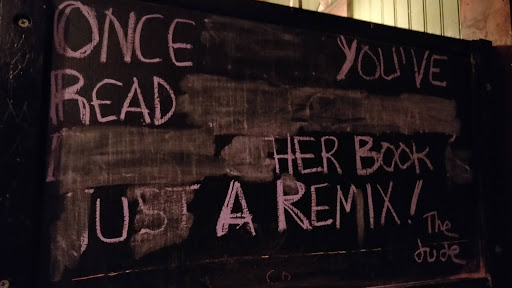 ONCE YOU'VE
READ
HER BOOK
JUST A REMIX!
The
dude